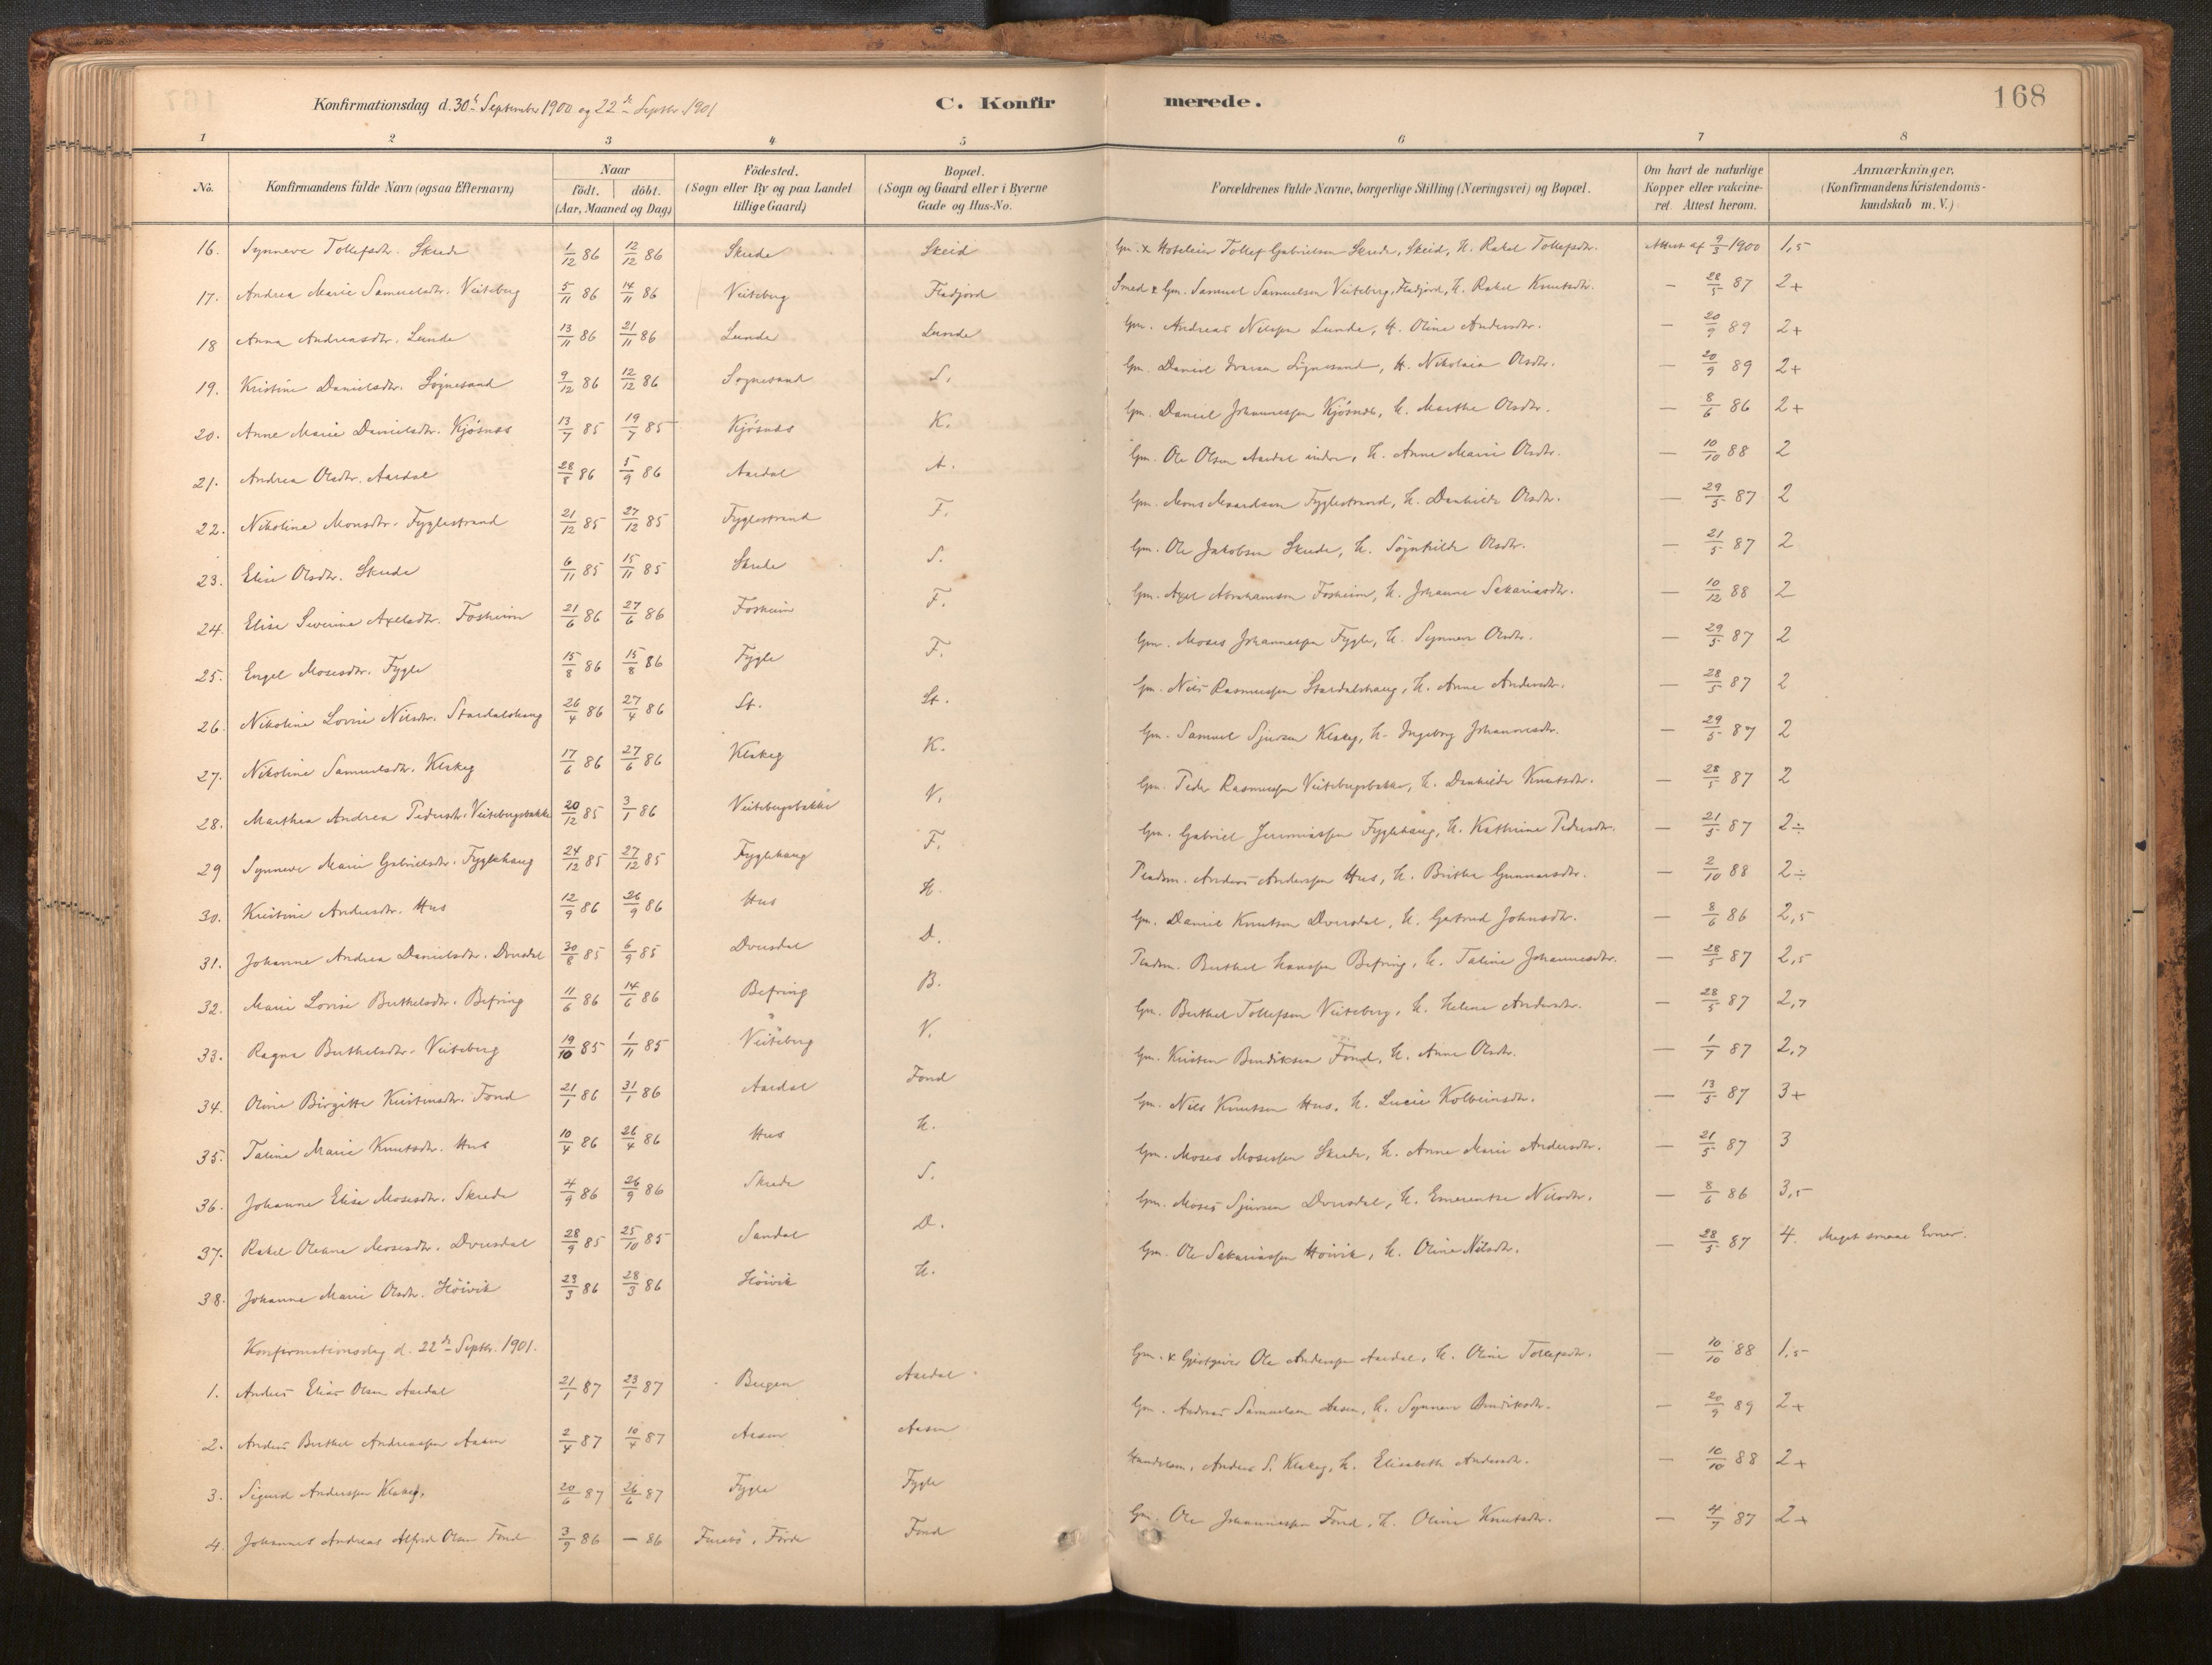 168
Konfirmationsdag d. 30te September 1900 og 22de Septbr. 1901
C. Konfirmerede.
1 2 3 4 5 6 7 8
No. Konfirmandens fulde Navn (ogsaa Efternavn) Naar födt. döbt. (Aar, Maaned og Dag) Födested. (Sogn eller By og paa Landet tillige Gaard) Bopæl. (Sogn og Gaard eller i Byerne Gade og Hus-No. Forældrenes fulde Navne, borgerlige Stilling (Næringsvei) og Bopæl. Om havt de naturlige Kopper eller vakcineret. Attest herom. Anmærkninger. (Konfirmandens Kristendomskundskab m. V.)
16. Synneve Tollefsdtr. Skrede 1/12 86 12/12 86 Skrede Skeid Gm. & Tollef Gabrielsen Skrede, Skeid, H. Rakel Tollefsdtr. Attest af 9/3 1900 1,5
17. Andrea Marie Samuelsdtr. Veiteberg 5/11 86 14/11 86 Veiteberg Fladjord Smed & Gm. Samuel Samuelsen Veiteberg, Fladjord, H. Rakel Knutsdtr. — 28/5 87 2+
18 Anna Andreasdtr. Lunde 13/11 86 21/11 86 Lunde Lunde Gm. Andreas Nilssen Lunde, H. Oline Andersdtr. — 20/9 89 2+
19. Kristine Danielsdtr. Sögnesand 9/12 86 12/12 86 Sognesand S. Gm. Daniel Ivarsen Sögnesand, H. Nikolaia Olsdtr. — 20/9 89 2+
20. Anne Marie Danielsdtr. Kjösnes 13/7 85 19/7 85 Kjösnes K. Gm. Daniel Johannessen Kjösnes, H. Marthe Olsdtr. — 8/6 86 2+
21. Andrea Olsdtr. Aardal 28/8 86 5/9 86 Aardal A. Gm. Ole Olsen Aardal indre, H. Anne Marie Olsdtr. — 10/10 88 2
22. Nikoline Monsdtr. Fyglestrand 21/12 85 27/12 85 Fyglestrand F. Gm. Mons Monsson Fyglestrand, H. Dankilde Olsdtr. — 29/5 87 2
23. Elise Olsdtr. Skrede 6/11 85 15/11 85 Skrede S. Gm. Ole Jakobsen Skrede, H. Sögnhilde Olsdtr. — 21/5 87 2
24. Elise Severine Axelsdtr. Fosheim 21/6 86 27/6 86 Fosheim F. Gm. Axel Abrahamsen Fosheim, H. Johanne Sakariasdtr. — 10/12 88 2
25. Engel Mosesdtr. Fygle 15/8 86 15/8 86 Fygle F. Gm. Moses Johannessen Fygle, H. Synneve Olsdtr. — 29/5 87 2
26. Nikoline Lovise Nilsdtr. Stardalshaug 26/4 86 27/4 86 St. St. Gm. Nils Rasmussen Stardalshaug, H. Anne Andersdtr. — 28/5 87 2
27. Nikoline Samuelsdtr. Klakeg 17/6 86 27/6 86 Klakeg K. Gm. Samuel Sjursen Klakeg, H. Ingeborg Johannesdtr. — 29/5 87 2
28. Marthea Andrea Pedersdtr. Veitebergsbakke 20/12 85 3/1 86 Veitebergsbakke V. Gm. Peder Rasmussen Veitebergsbakke, H. Dankilde Knutsdtr. — 28/5 87 2
29 Synneve Marie Gabrielsdtr. Fyglehaug 24/12 85 27/12 85 Fyglehaug F. Gm. Gabriel Jeremiassen Fyglehaug, H. Kathrine Pedersdtr. — 21/5 87 2÷
30. Kristine Andersdtr. Hus 12/9 86 26/9 86 Hus H. Pladsm. Anders Anderssen Hus, H. Brithe Gunnarsdtr. — 2/10 88 2÷
31. Johanne Andrea Danielsdtr. Dvergsdal 30/8 85 6/9 85 Dvergsdal D. Gm. Daniel Knutsen Dvergsdal, H. Gertrud Johnsdtr. — 8/6 86 2,5
32. Marie Lovise Berthelsdtr. Befring 11/6 86 14/6 86 Befring B. Pladsm. Berthel Hanssen Befring, H. Taline Johannesdtr. — 28/5 87 2,5
33. Ragna Berthelsdtr. Veiteberg 19/10 85 1/11 85 Veiteberg V. Gm. Berthel Tollefsen Veiteberg, H. Helene Andersdtr. — 28/5 87 2,7
34. Oline Birgitte Kristensdtr. Fond 21/1 86 31/1 86 Aardal Fond Gm. Kristen Bendiksen Fond, H. Anne Olsdtr. — 1/7 87 2,7
35. Taline Marie Knutsdtr. Hus 10/4 86 26/4 86 Hus H. Gm. Nils Knutsen Hus, H. Lucie Kolbeinsdtr. — 13/5 87 3+
36. Johanne Elise Mosesdtr. Skrede 4/9 86 26/9 86 Skrede S. Gm. Moses Mosessen Skrede, H. Anne Marie Andersdtr. — 21/5 87 3
37. Rakel Oleane Mosesdtr. Dvergsdal 28/9 85 25/10 85 Sandal D. Gm. Moses Sjursen Dvergsdal, H. Emerentze Nilsdtr. — 8/6 86 3,5
38. Johanne Marie Olsdtr. Höivik 23/3 86 28/3 86 Höivik H. Gm. Ole Sakariassen Höivik, H. Oline Nilsdtr. — 28/5 87 4. Meget smaae Evner.
Konfirmationsdag d. 22de Septbr. 1901.
1. Anders Elias Olsen Aardal 21/1 87 23/1 87 Bergen Aardal Gm. & Gjestgiver Ole Anderssen Aardal, H. Oline Tollefsdtr. — 10/10 88 1,5
2. Anders Berthel Andreassen Aasen 2/4 87 10/4 87 Aasen Aasen Gm. Andreas Samuelsen Aasen, H. Synneve Bendiksdtr. — 20/9 89 2+
3. Sigurd Anderssen Klakeg. 20/6 87 26/6 87 Fygle Fygle Handelsm. Anders S. Klakeg, H. Elisabeth Andersdtr. — 10/10 88 2+
4. Johannes Andreas Alfred Olsen Fond 3/9 86 — 86 Furebö, Förde Fond Gm. Ole Johannessen Fond, H. Oline Knutsdtr. — 4/7 87 2+